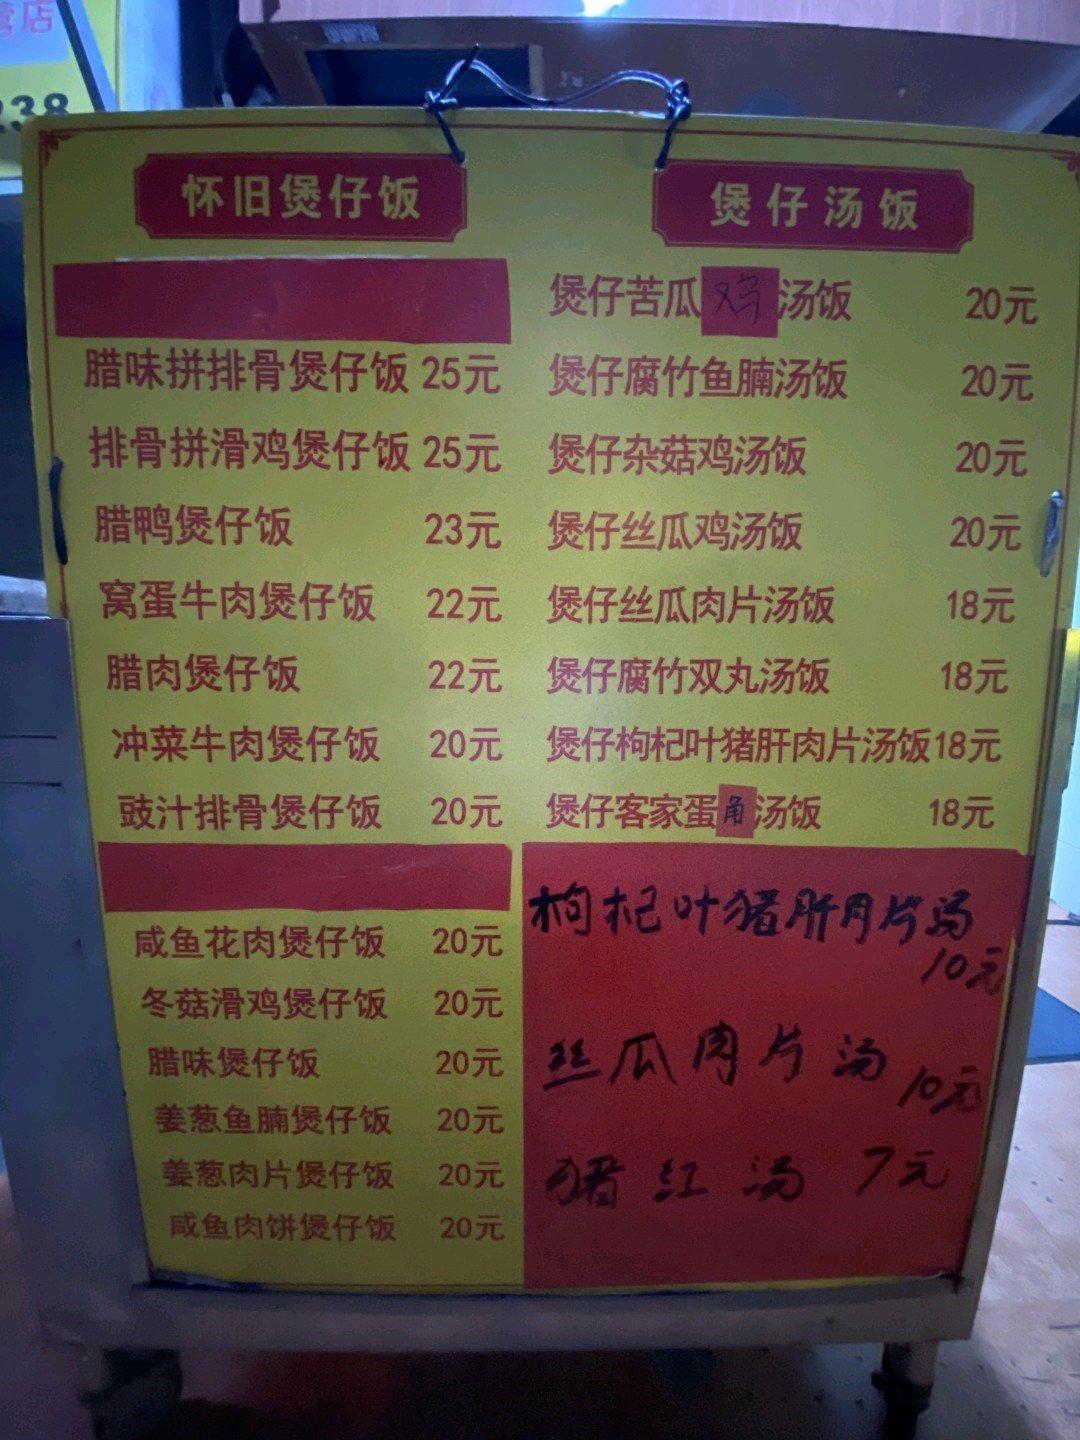 营店
238
怀旧煲仔饭
腊味拼排骨煲仔饭 25元
排骨拼滑鸡煲仔饭 25元
腊鸭煲仔饭 23元
窝蛋牛肉煲仔饭 22元
腊肉煲仔饭 22元
冲菜牛肉煲仔饭 20元
豉汁排骨煲仔饭 20元
咸鱼花肉煲仔饭 20元
冬菇滑鸡煲仔饭 20元
腊味煲仔饭 20元
姜葱鱼腩煲仔饭 20元
姜葱肉片煲仔饭 20元
咸鱼肉饼煲仔饭 20元
煲仔汤饭
煲仔苦瓜鸡汤饭 20元
煲仔腐竹鱼腩汤饭 20元
煲仔杂菇鸡汤饭 20元
煲仔丝瓜鸡汤饭 20元
煲仔丝瓜肉片汤饭 18元
煲仔腐竹双丸汤饭 18元
煲仔枸杞叶猪肝肉片汤饭18元
煲仔客家蛋角汤饭 18元
枸杞叶猪肝肉片汤
10元
丝瓜肉片汤 10元
猪红汤 7元